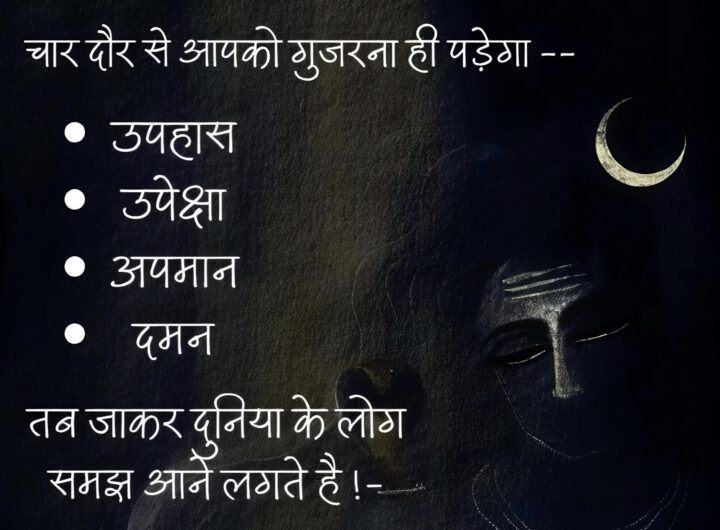 चार दौर से आपको गुजरना ही पड़ेगा --
• उपहास
• उपेक्षा
• अपमान
• दमन
तब जाकर दुनिया के लोग
समझ आने लगते है !-